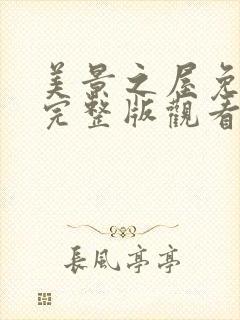 美景之屋免
完整版觀看
長風亭亭